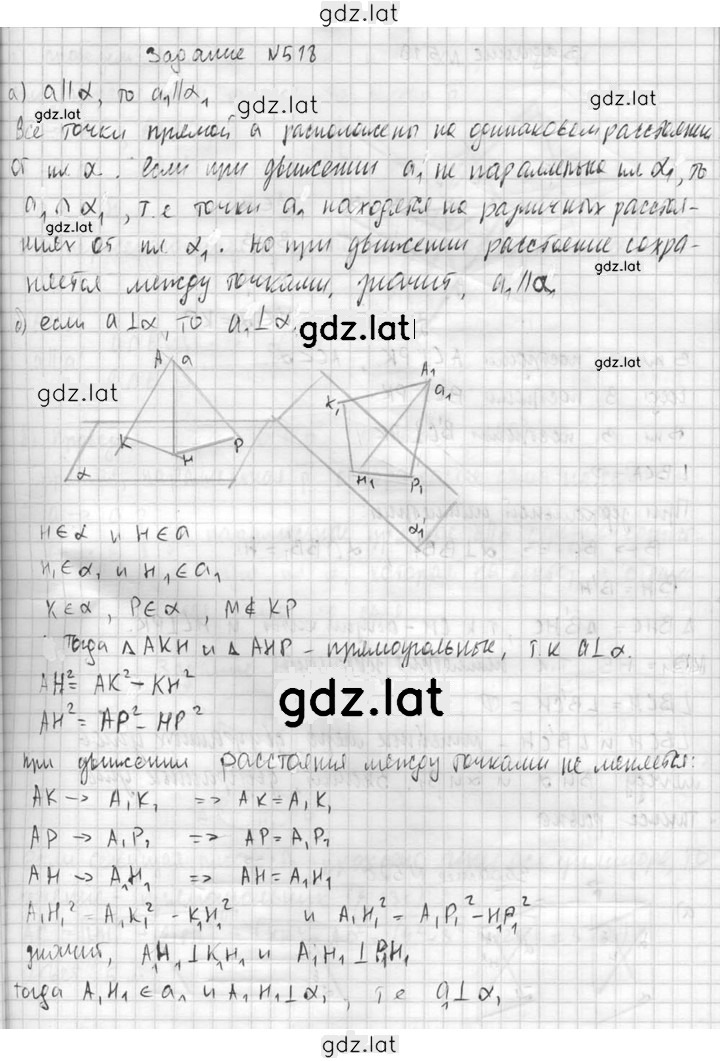 gdz.lat
Задание №518
а) a∥α, то a₁∥α₁
gdz.lat
gdz.lat
Все точки прямой a расположены на одинаковом расстоянии
от пл α. Если при движении a₁ не параллельна пл α₁, то
a₁ ∩ α₁, т.е точки a₁ находятся на различных расстоя-
gdz.lat
ниях от пл α₁. Но при движении расстояние сохра-
gdz.lat
няется между точками, значит, a₁∥α₁
б) если a⊥α, то a₁⊥α₁
gdz.lat
gdz.lat
gdz.lat
A a
K H P
α
A₁
a₁
K₁
H₁ P₁
α₁
H∈α и H∈a
H₁∈α₁ и H₁∈a₁
K∈α, P∈α, M∉KP
Тогда △AKH и △AHP – прямоугольные, т.к a⊥α.
AH² = AK² – KH²
gdz.lat
AH² = AP² – HP²
При движении расстояния между точками не меняется:
AK → A₁K₁ => AK = A₁K₁
AP → A₁P₁ => AP = A₁P₁
AH → A₁H₁ => AH = A₁H₁
A₁H₁² = A₁K₁² – K₁H₁² и A₁H₁² = A₁P₁² – H₁P₁²
значит, A₁H₁⊥K₁H₁ и A₁H₁⊥P₁H₁
тогда A₁H₁∈a₁ и A₁H₁⊥α₁, т.е a₁⊥α₁
gdz.lat